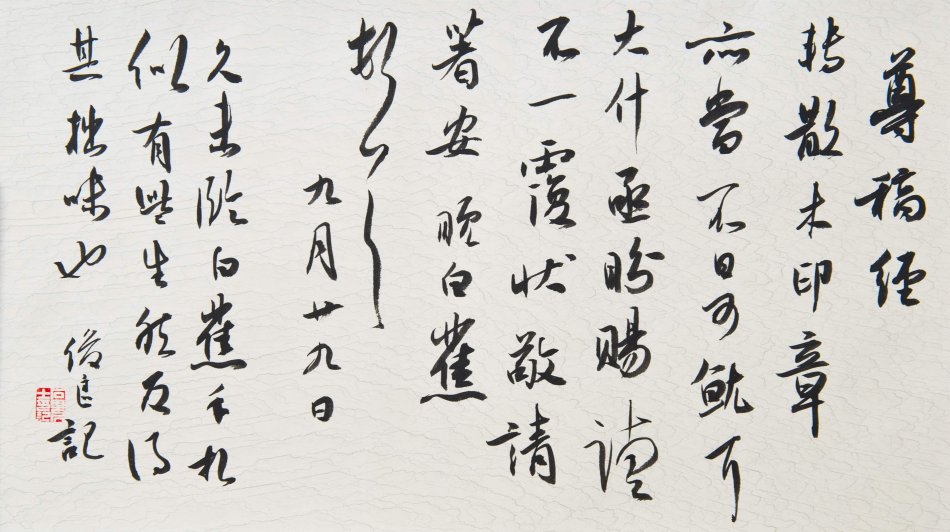 尊稿經
轉散木印章
亦當不日可就耳
大什亟盼賜讀
不一覆状敬請
著安 晚白蕉
頓首
九月廿九日
久未臨白蕉手札
似有些生然不得
其拙味也 俊良記